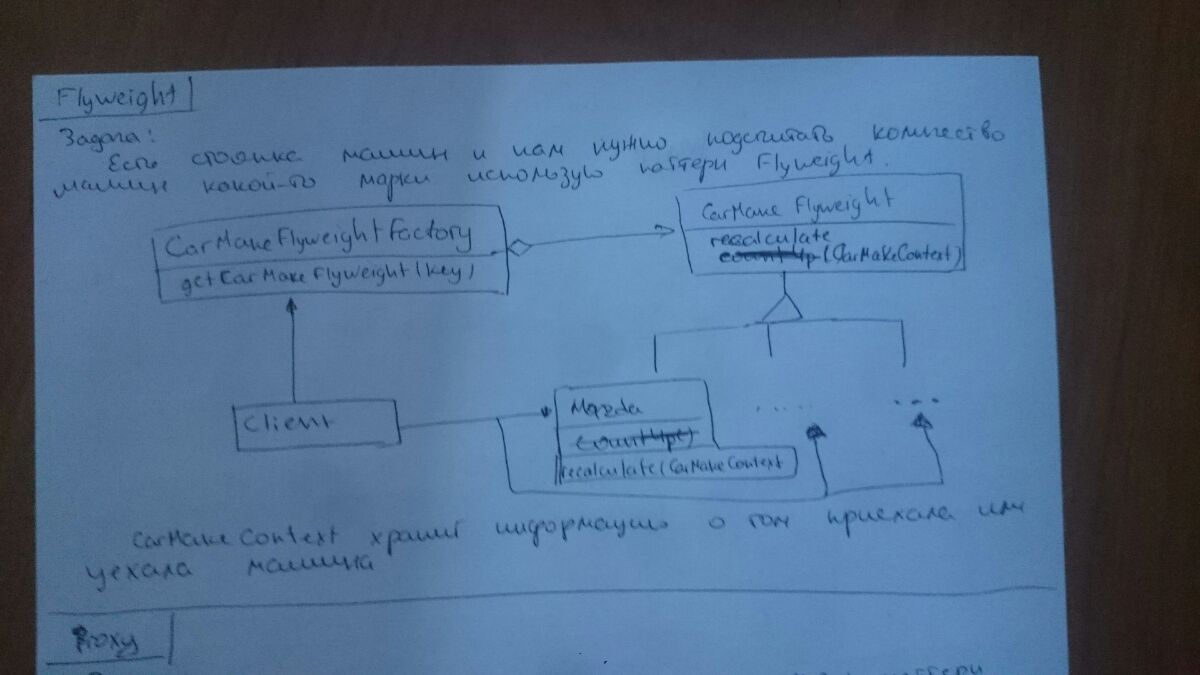 Flyweight
Задача:
Есть стоянка машин и нам нужно подсчитать количество
машин какой-то марки использую паттерн Flyweight.
CarMakeFlyweightFactory
getCarMakeFlyweight(key)
CarMake Flyweight
recalculate
countUp(CarMakeContext)
Client
Mazda
countUp()
recalculate(CarMakeContext
.....
...
CarMakeContext хранит информацию о том приехала или
уехала машина
Proxy
паттерн